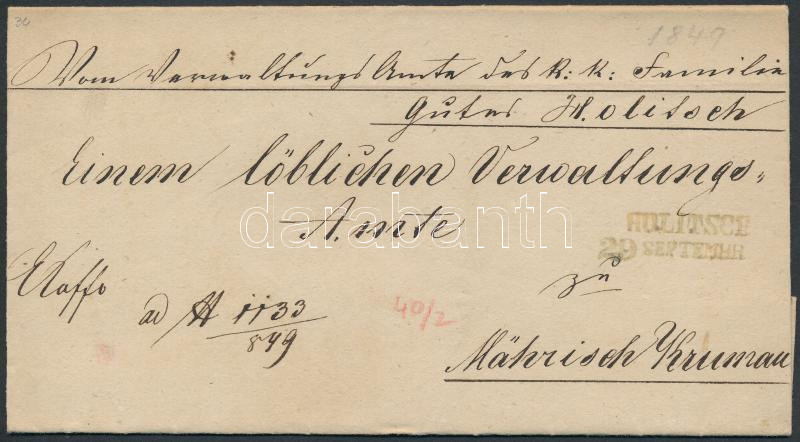 34
1849
Vom Verwaltungs Amte des K: K: Familien
Gutes Holitsch
Einem löblichen Verwaltungs-
Amte
HOLITSCH
29 SEPTEMBR
zu
ad № 1133/849
40/2
Mährisch Krumau
darabanth